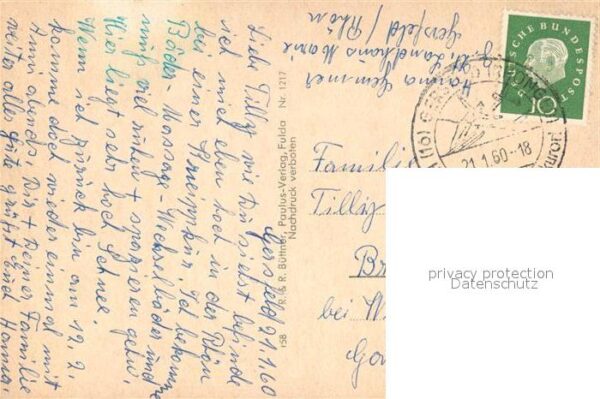 Hanna Gemmer
z. Zt. Landhaus Marie
Gersfeld / Rhön
DEUTSCHE BUNDESPOST
10
21.1.60-18
Gersfeld 21.1.60
Liebe Tilly, wie Du siehst befinde
ich mich eben hoch in der Rhön
bei einer Kneippkur. Ich bekomme
Bäder - Massage - Wechselbäder und
muß viel ruhen + spazieren gehn.
Hier liegt sehr hoch Schnee.
Wenn ich zurück bin am 12.2.
komme doch wieder einmal mit
Anni abends. Dir + Deiner Familie
weiter alles Gute grüßt Euch Hanna.
158 R. & R. Büttner, Paulus-Verlag, Fulda Nr. 1217
Nachdruck verboten
Familie
Tilly
Br
bei W
Ga
privacy protection
Datenschutz